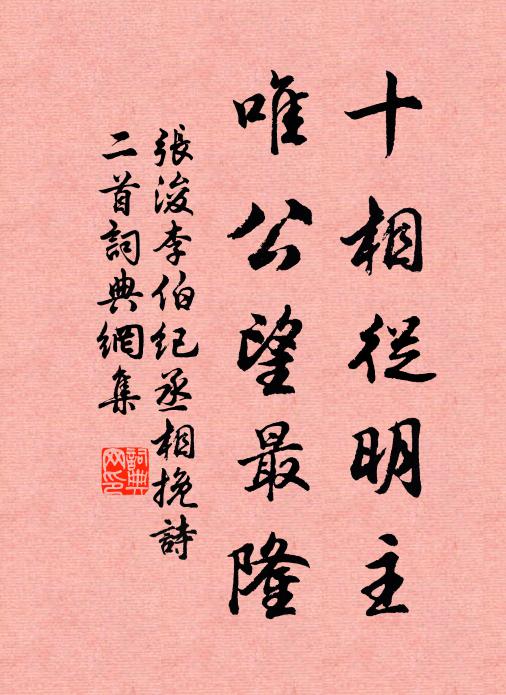 十相從明主
唯公望最隆
張浚李伯紀丞相挽詩
二首詞典網集
詞典网印